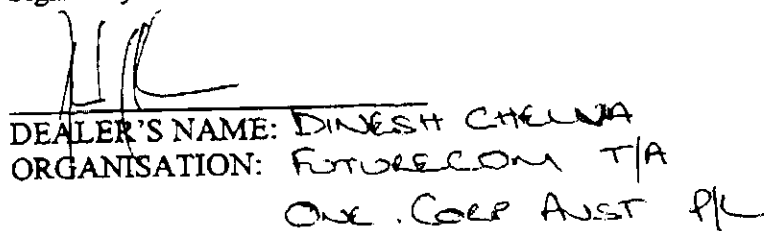 DEALER'S NAME: DINESH CHELVA
ORGANISATION: FUTURECOM T/A
ONE.CORP AUST P/L